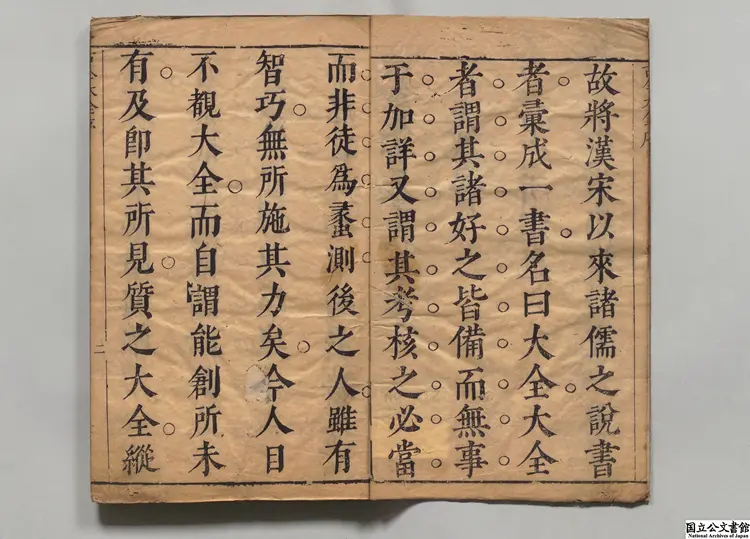 故將漢宋以來諸儒之說書
者彙成一書名曰大全大全
者謂其諸好之皆備而無事
于加詳又謂其考核之必當
而非徒爲蠡測後之人雖有
智巧無所施其力矣今人目
不覩大全而自謂能創所未
有及卽其所見質之大全縱
二
国立公文書館
National Archives of Japan